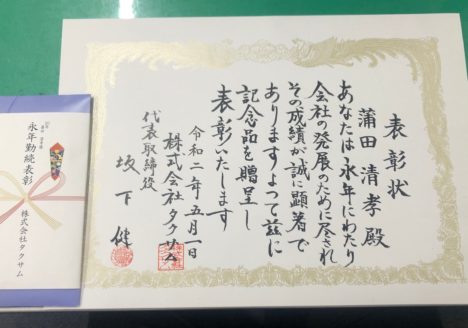 表彰状
蒲田清孝殿
あなたは永年にわたり
会社の発展のために尽され
その成績が誠に顕著で
ありますよって茲に
記念品を贈呈し
表彰いたします
令和二年五月一日
株式会社タクサム
代表取締役
坂下健
永年勤続表彰
株式会社タクサム